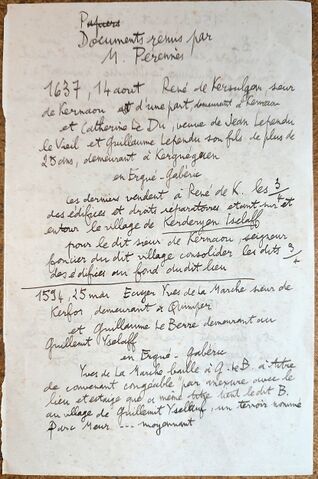 Papiers
Documents remis par
M. Perennès
1637, 14 aout René de Kersulgan sieur
de Kernaou et d'une part demeurant à Kernaou
et Catherine Le Du, veuve de Jean Lehendu
le Vieil et Guillaume Lehendu son fils de plus de
25 ans, demeurant à Kergueguen
en Ergué-Gabéric
Les derniers vendent à René de K. les 3/4
des édifices et droits réparatoires etant sur et
entour le village de Kerdergen Iselaff
pour le dit sieur de Kernaou, seigneur
foncier du dit village consolider les dits 3/4
des édifices au fond du dit lieu
1594, 25 mai Ecuyer Yves de la Marche sieur de
Kerfos demeurant à Quimper
et Guillaume Le Berre demeurant au
Guillemit Yselaff
en Ergué-Gabéric
Yves de La Marche baille à G. Le B. à titre
de convenant congéable par avec le
lieu et estage que a mené titre tient le dit B.
au village de Guillemit Yselaff, un terroir nommé
Parc Meur --- moyennant